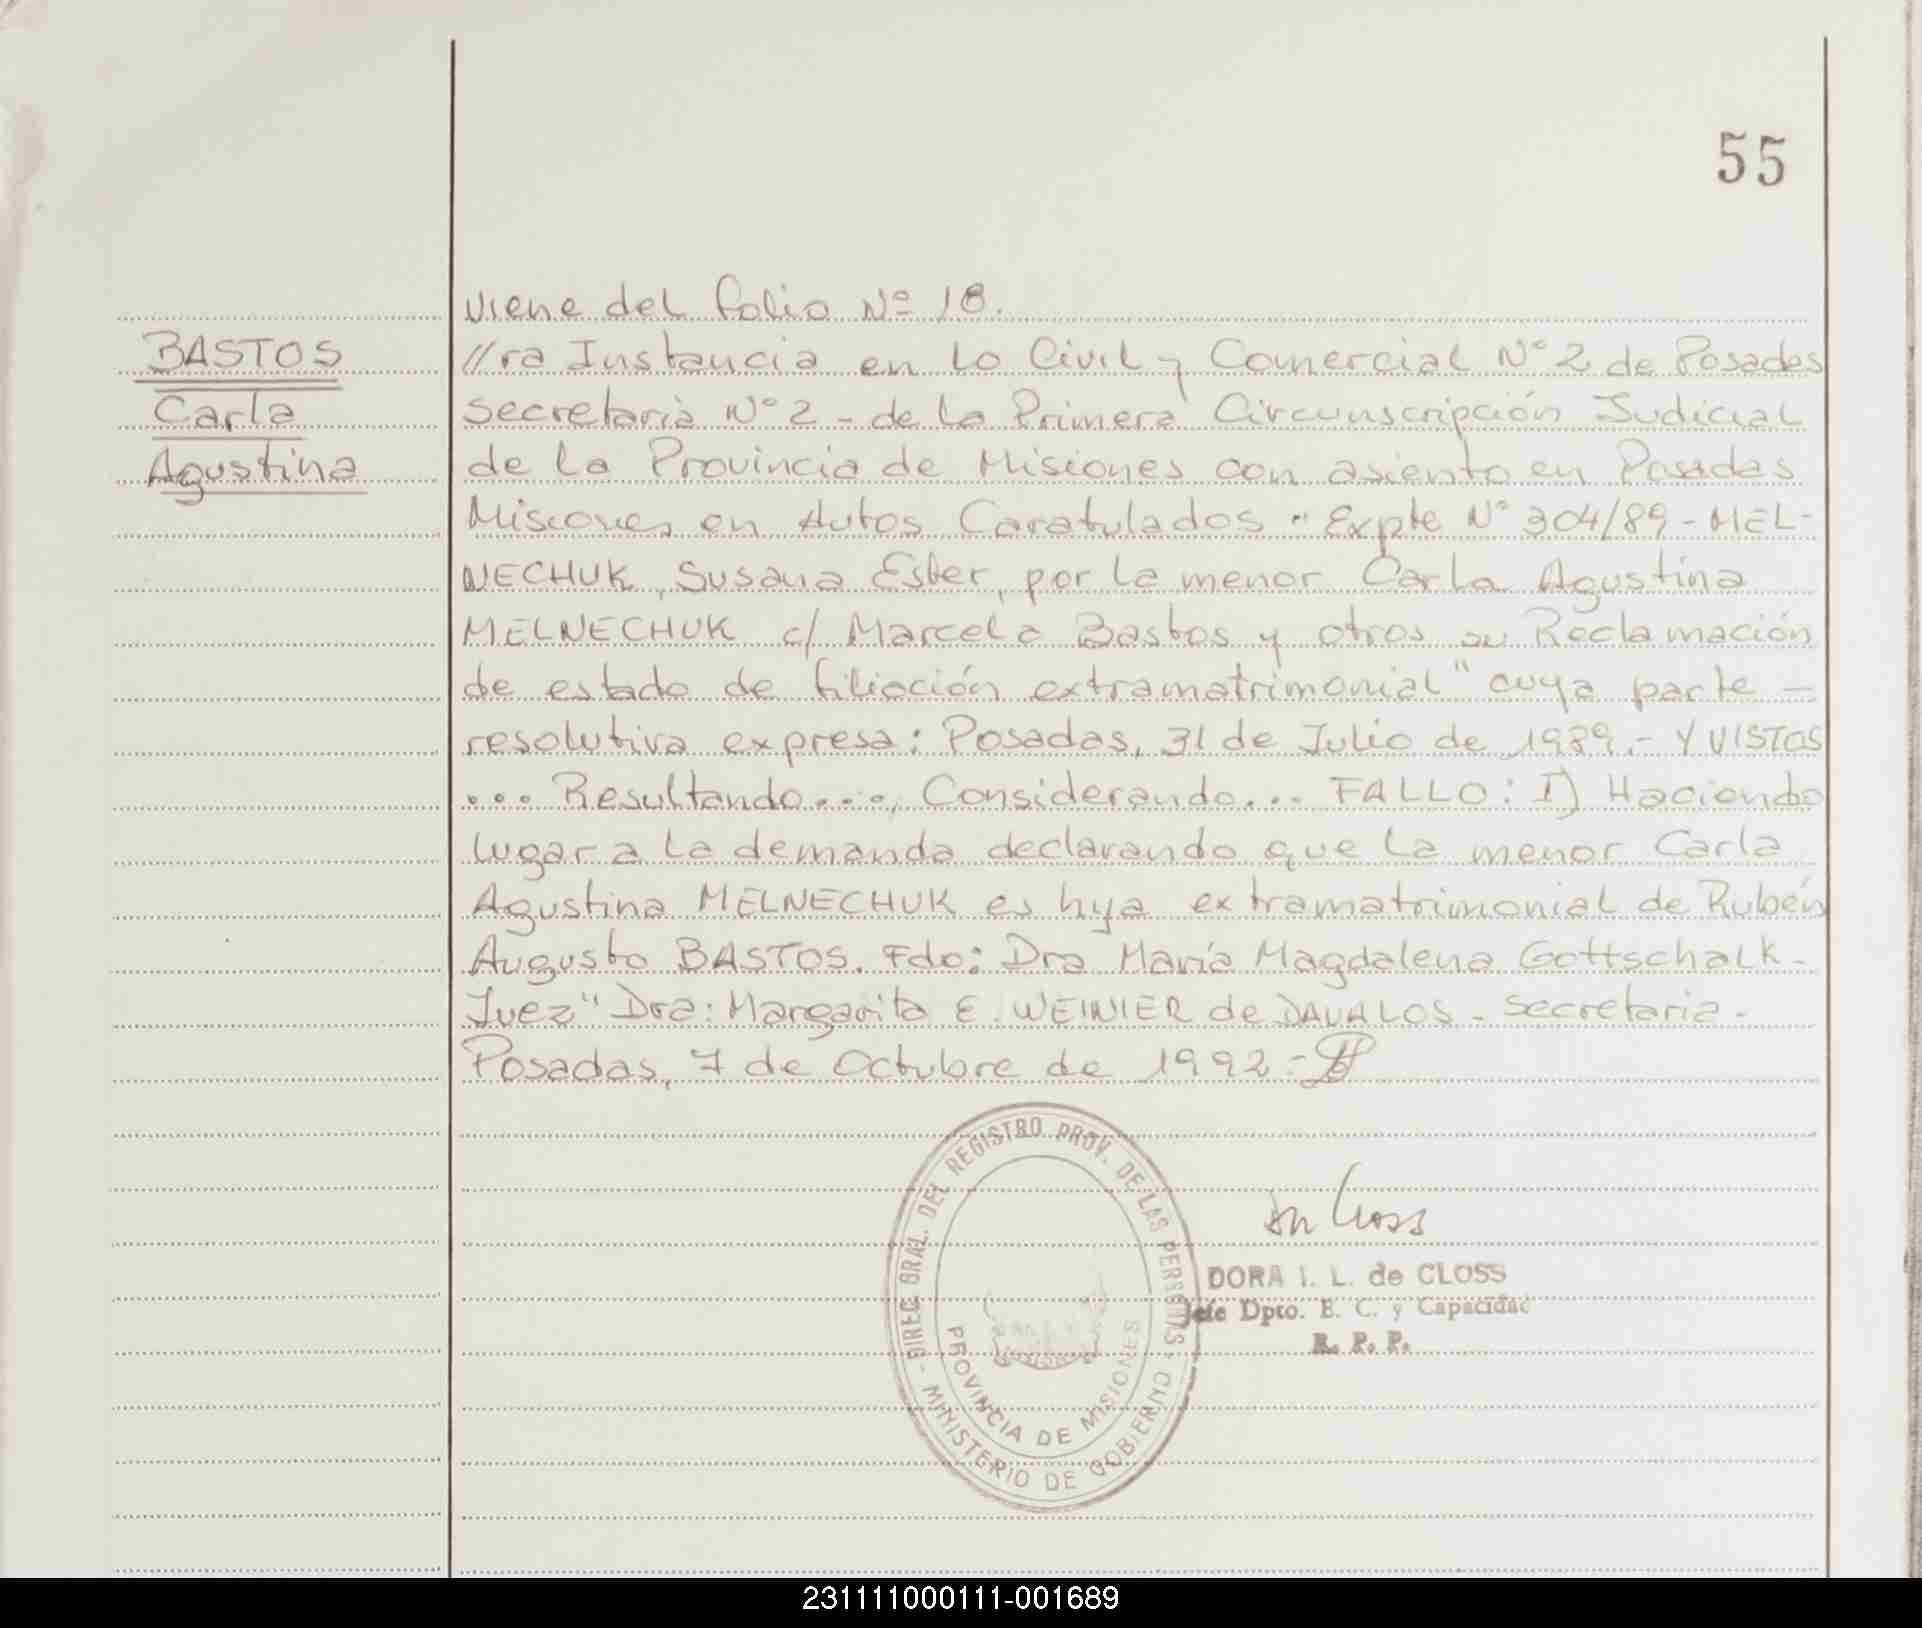 55
viene del folio Nº 18.
BASTOS
Carla
Agustina
//ra Instancia en lo Civil y Comercial Nº 2 de Posadas
Secretaria Nº 2 - de la Primera Circunscripción Judicial
de la Provincia de Misiones con asiento en Posadas
Misiones en Autos Caratulados "Expte Nº 304/89 - MEL-
NECHUK, Susana Ester, por la menor Carla Agustina
MELNECHUK c/ Marcela Bastos y otros su Reclamación
de estado de filiación extramatrimonial" cuya parte -
resolutiva expresa: Posadas, 31 de Julio de 1989.- Y VISTOS
... Resultando..., Considerando... FALLO: I) Haciendo
lugar a la demanda declarando que la menor Carla
Agustina MELNECHUK es hija extramatrimonial de Rubén
Augusto BASTOS. Fdo: Dra María Magdalena Gottschalk -
Juez" Dra: Margarita E. WEINIER de DAVALOS - Secretaria -
Posadas, 7 de Octubre de 1992.-
DIREC. GRAL. DEL REGISTRO PROV. DE LAS PERSONAS
- MINISTERIO DE GOBIERNO -
PROVINCIA DE MISIONES
DORA I. L. de CLOSS
Jefe Dpto. E. C. y Capacidad
R. P. P.
231111000111-001689